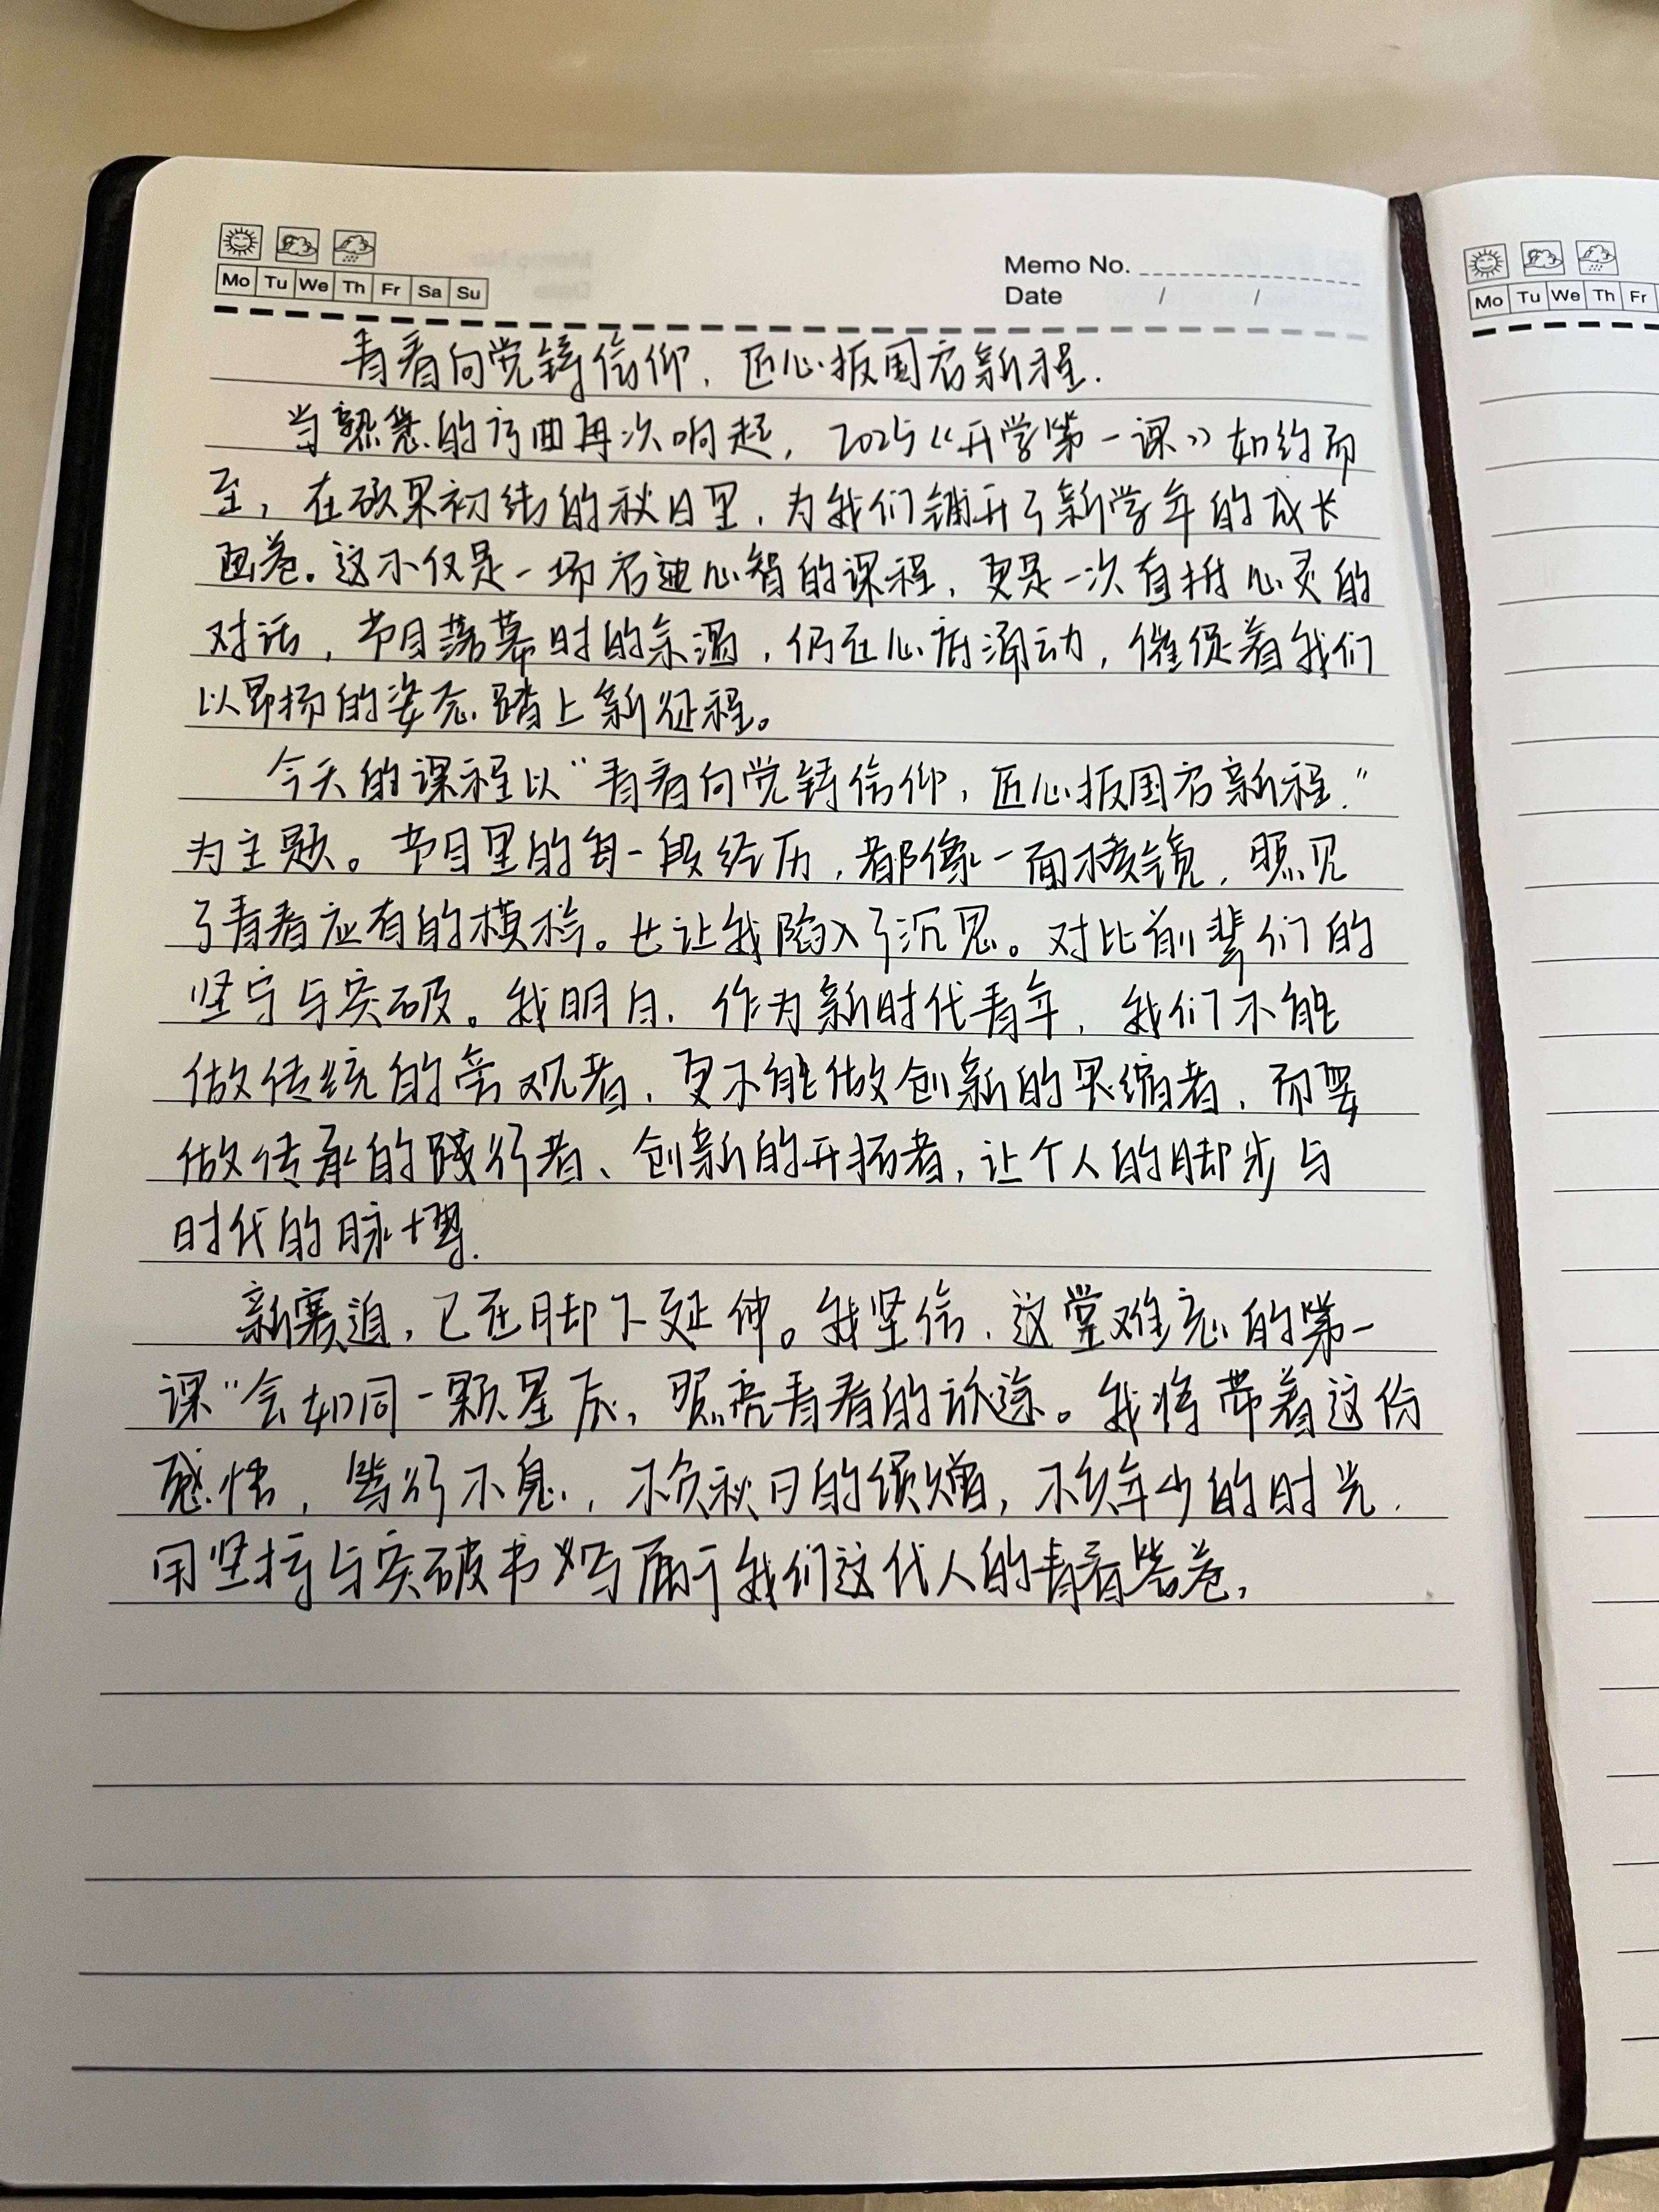 Memo No.
Mo Tu We Th Fr Sa Su
Date / /
Mo Tu We Th Fr
青春向党铸信仰，匠心报国启新程.
当熟悉的序曲再次响起，2025《开学第一课》如约而
至，在硕果初结的秋日里，为我们铺开了新学年的成长
画卷。这不仅是一场启迪心智的课程，更是一次直抵心灵的
对话，节目落幕时的余温，仍在心底涌动，催促着我们
以昂扬的姿态踏上新征程。
今天的课程以“青春向党铸信仰，匠心报国启新程.”
为主题。节目里的每一段经历，都像一面棱镜，照见
了青春应有的模样。也让我陷入了沉思。对比前辈们的
坚守与突破。我明白，作为新时代青年，我们不能
做传统的旁观者，更不能做创新的畏缩者，而要
做传承的践行者、创新的开拓者，让个人的脚步与
时代的脉
新赛道，已在脚下延伸。我坚信，这堂难忘的第一
课”会如同一颗星辰，照亮青春的旅途。我将带着这份
感悟，笃行不息，不负秋日的馈赠，不负年少的时光.
用坚持与突破书写属于我们这代人的青春答卷，